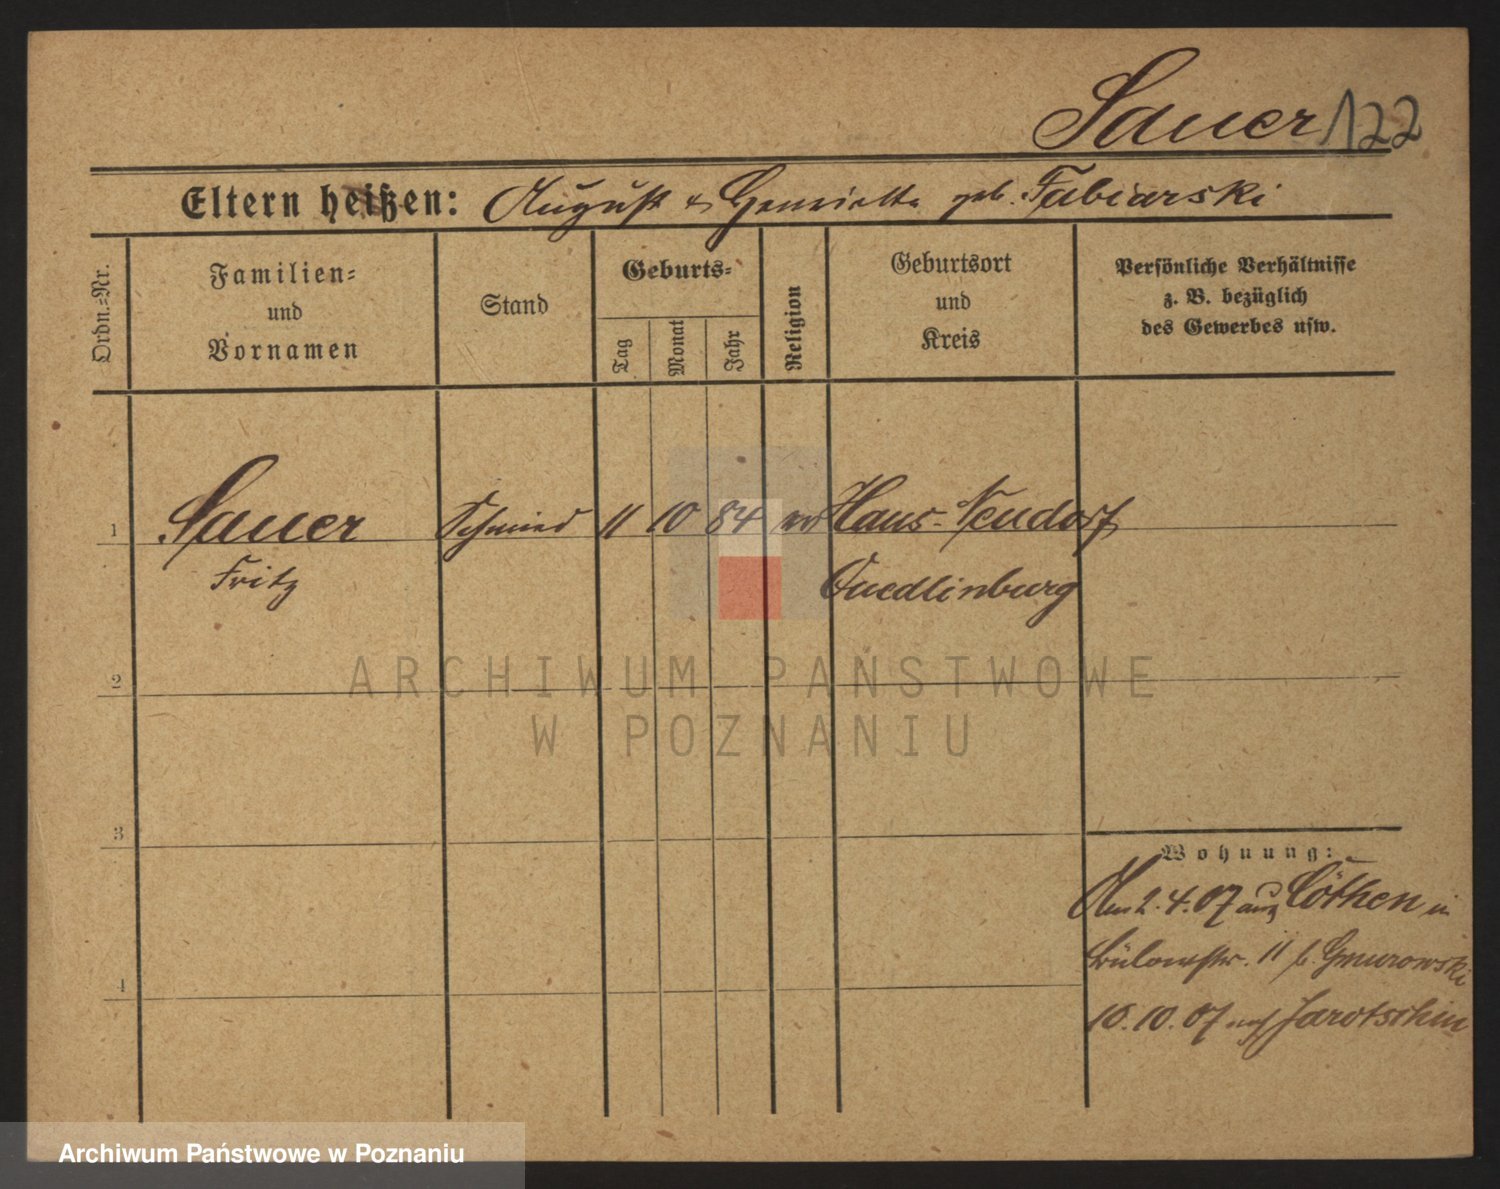 Sauer 122
Eltern heißen: August & Henriette geb. Fabiarski
Ordn.=Nr.
Familien=
und
Vornamen
Stand
Geburts=
Tag
Monat
Jahr
Religion
Geburtsort
und
Kreis
Persönliche Verhältnisse
z. B. bezüglich
des Gewerbes usw.
1 Sauer Schmied 11 10 84 ev Haus-Neudorf
Fritz Quedlinburg
2
ARCHIWUM PAŃSTWOWE
W POZNANIU
3
Wohnung:
Am 2.4.07 aus Cöthen in
Bülowstr. 11 b. Gmurowski
4
10.07 nach Jarotschin
Archiwum Państwowe w Poznaniu